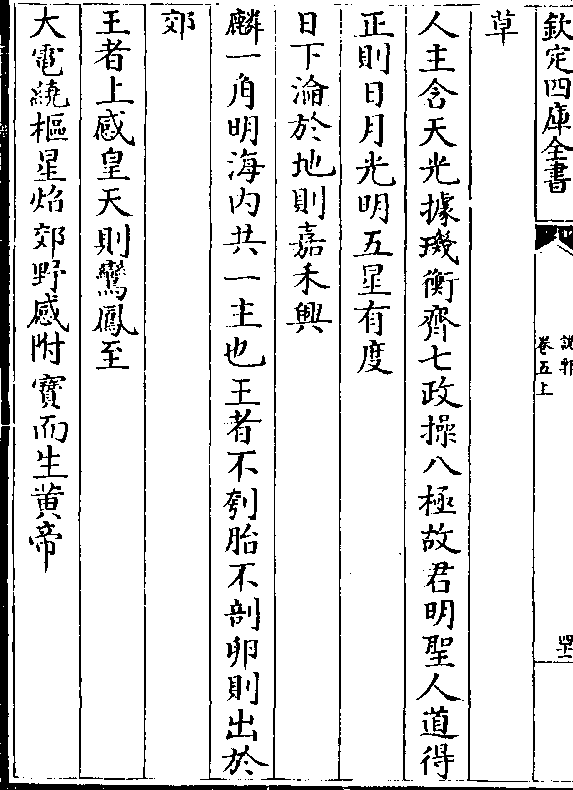 欽定四庫全書
說郛
卷五上
草
人主含天光據璣衡齊七政操八極故君明聖人道得
正則日月光明五星有度
日下淪於地則嘉禾興
麟一角明海内共一主也王者不刳胎不剖卵則出於
郊
王者上感皇天則鸞鳳至
大電繞樞星焰郊野感附寶而生黄帝